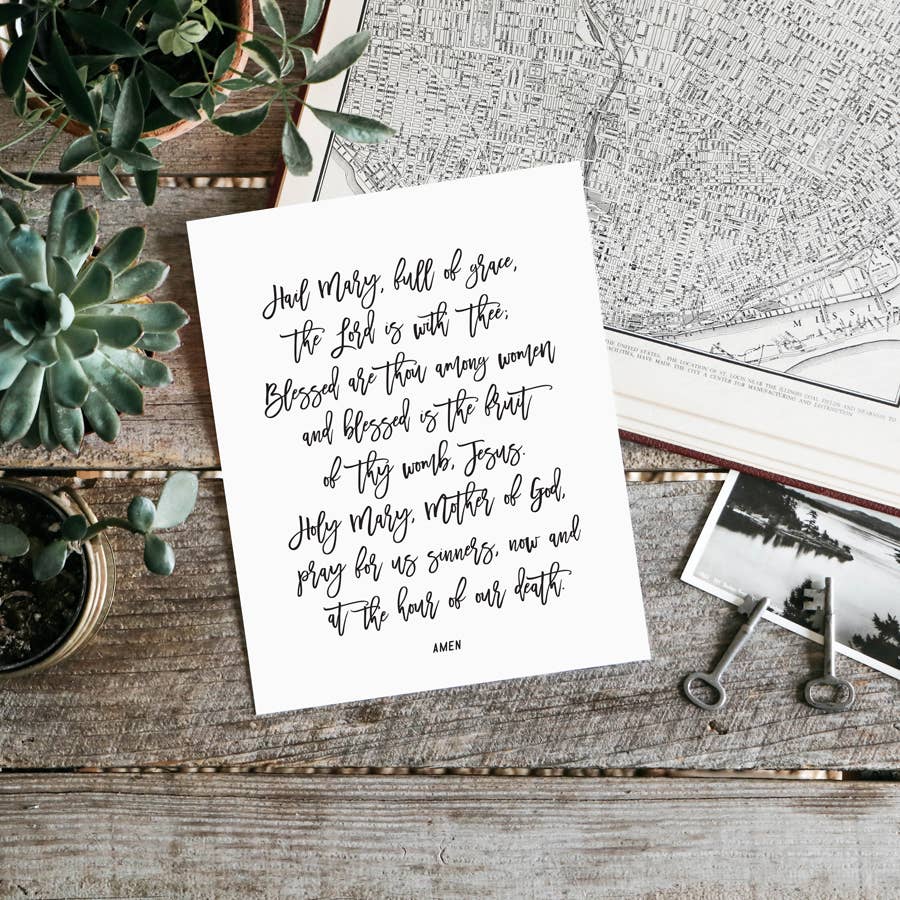 Hail Mary, full of grace,
the Lord is with thee;
Blessed are thou among women
and blessed is the fruit
of thy womb, Jesus.
Holy Mary, Mother of God,
pray for us sinners, now and
at the hour of our death.
AMEN
MISSI
THE UNITED STATES. THE LOCATION OF ST. LOUIS NEAR THE ILLINOIS COAL FIELDS AND NEARNESS TO
FACILITIES, HAVE MADE THE CITY A CENTER FOR MANUFACTURING AND DISTRIBUTION